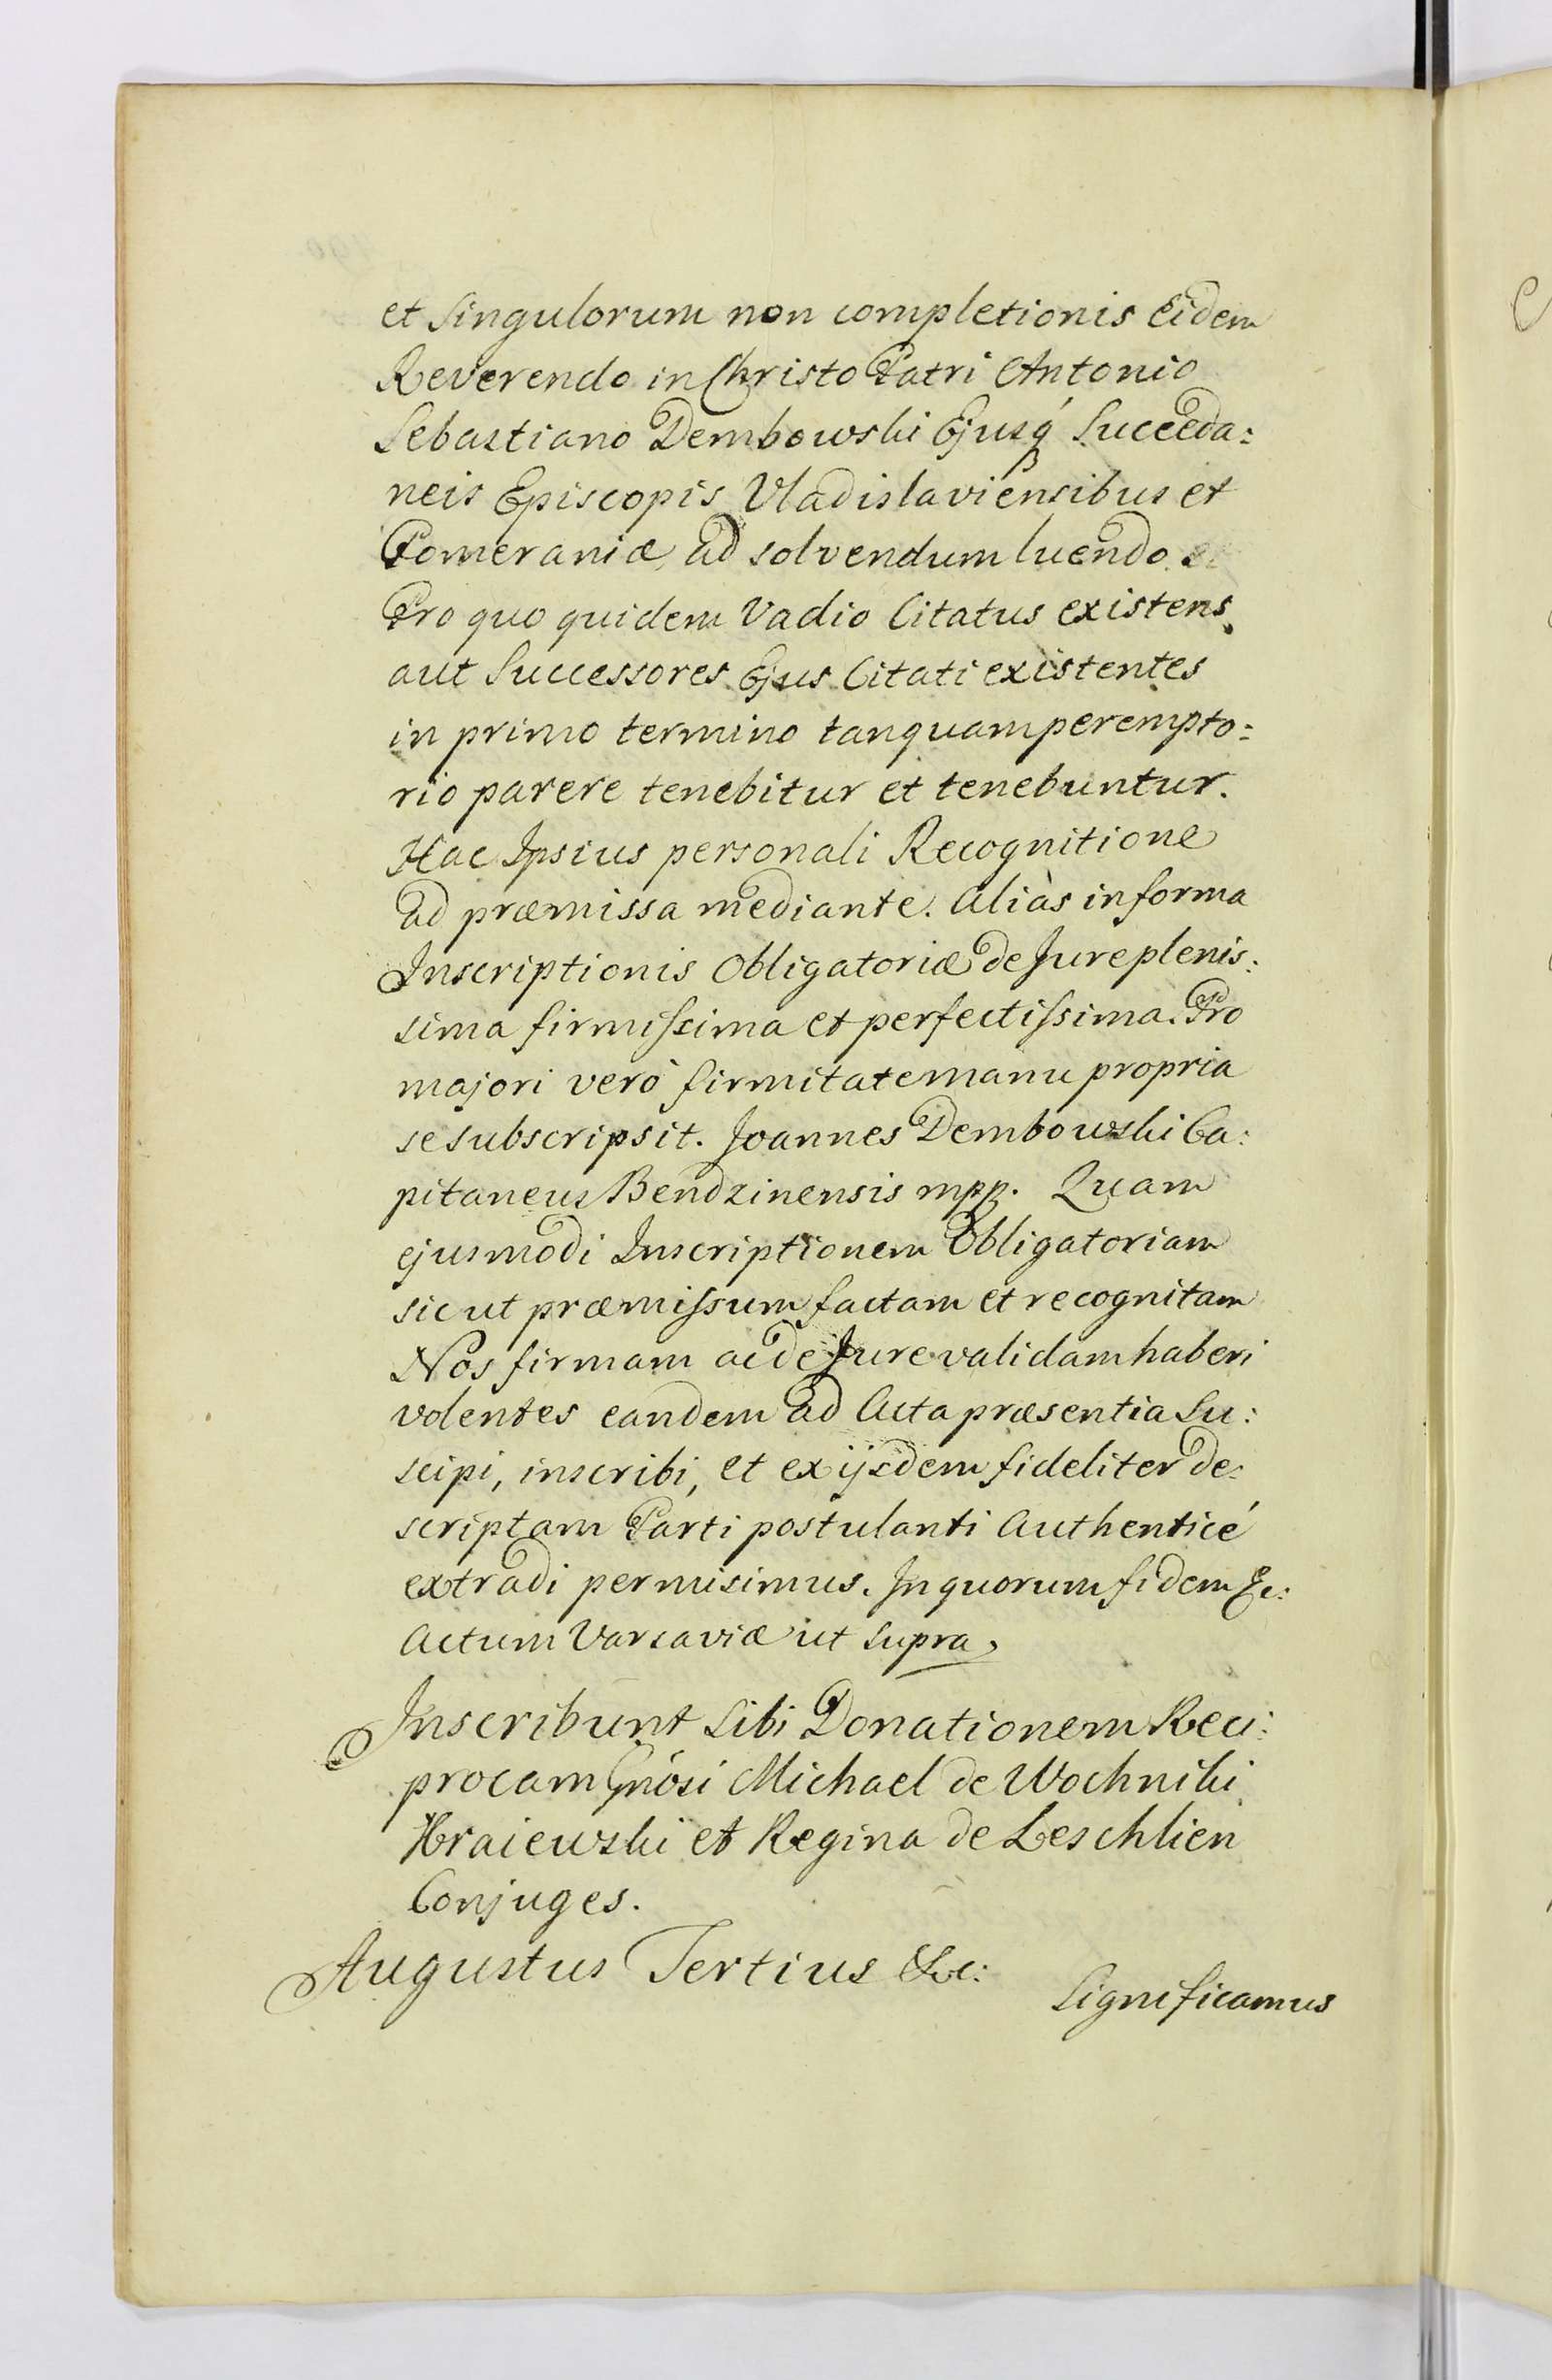 et Singulorum non completionis Eidem
Reverendo in Christo Patri Antonio
Sebastiano Dembowski Ejusq́ Succeda:
neis Episcopis Vladislaviensibus et
Pomeraniæ, ad solvendum luendo
Pro quo quidem Vadio Citatus existens
aut Successores Ejus Citati existentes
in primo termino tanquam perempto:
rio parere tenebitur et tenebuntur.
Hac Ipsius personali Recognitione
ad præmissa mediante. Aliàs in forma
Inscriptionis Obligatoriæ de Jure plenis:
sima firmissima et perfectissima. Pro
majori verò firmitate manu propria
se subscripsit. Joannes Dembowski Ca:
pitaneus Bendzinensis mpp. Quam
ejusmodi Inscriptionem Obligatoriam
sic ut præmissum factam et recognitam
Nos firmam ac de Jure validam haberi
volentes eandem ad Acta præsentia Su:
scipi, inscribi, et ex ijsdem fideliter de:
scriptam Parti postulanti Authenticé
extradi permisimus. In quorum fidem &c:
Actum Varsaviæ ut supra,
Inscribunt Sibi Donationem Reci:
procam Gnósi Michael de Wochniki
Kraiewski et Regina de Leschlien
Conjuges.
Augustus Tertius &c:
Significamus